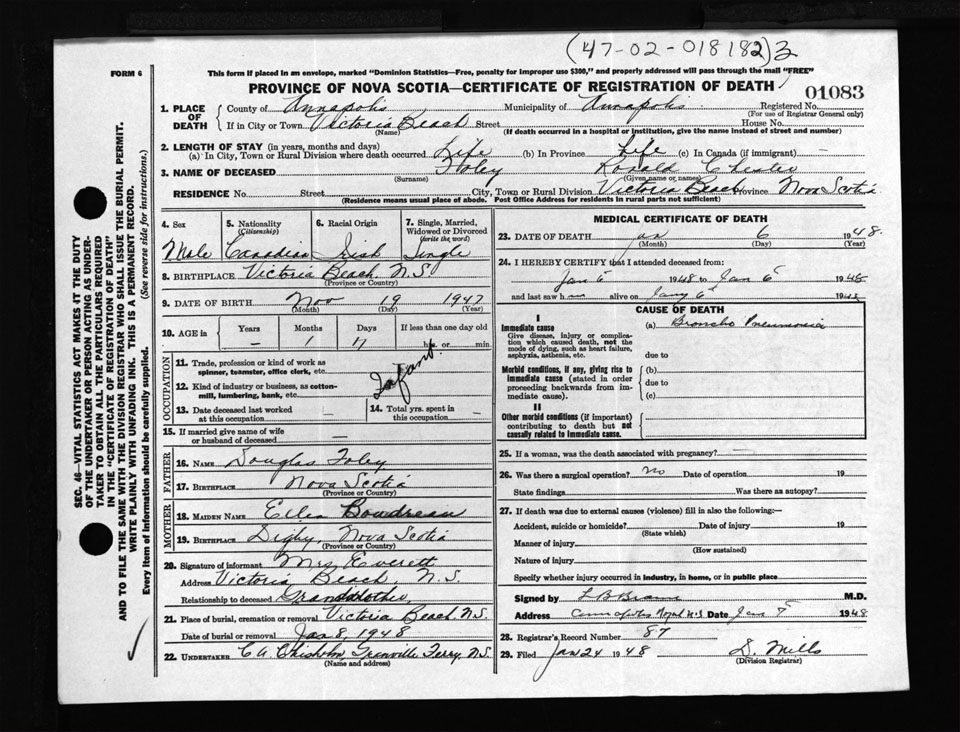 (47-02-018182) 3
FORM 6
This form if placed in an envelope, marked "Dominion Statistics—Free, penalty for improper use $300," and properly addressed will pass through the mail "FREE"
PROVINCE OF NOVA SCOTIA—CERTIFICATE OF REGISTRATION OF DEATH
01083
1. PLACE OF DEATH
County of Annapolis Municipality of Annapolis Registered No.
(For use of Registrar General only)
If in City or Town Victoria Beach Street House No.
(Name) (If death occurred in a hospital or institution, give the name instead of street and number)
2. LENGTH OF STAY (in years, months and days)
(a) In City, Town or Rural Division where death occurred Life (b) In Province Life (c) In Canada (if immigrant) —
3. NAME OF DECEASED Foley Ronald Cheslie
(Surname) (Given name or names)
RESIDENCE No. Street City, Town or Rural Division Victoria Beach Province Nova Scotia
(Residence means usual place of abode. Post Office Address for residents in rural parts not sufficient)
4. Sex 5. Nationality (Citizenship) 6. Racial Origin 7. Single, Married, Widowed or Divorced (write the word)
Male Canadian Irish Single
8. BIRTHPLACE Victoria Beach, N.S.
(Province or Country)
9. DATE OF BIRTH Nov 19 1947
(Month) (Day) (Year)
10. AGE in Years Months Days If less than one day old
— 1 17 hrs. or min.
OCCUPATION
11. Trade, profession or kind of work as spinner, teamster, office clerk, etc.
Infant
12. Kind of industry or business, as cotton-mill, lumbering, bank, etc.
13. Date deceased last worked at this occupation —
14. Total yrs. spent in this occupation —
15. If married give name of wife or husband of deceased —
FATHER
16. NAME Douglas Foley
17. BIRTHPLACE Nova Scotia
(Province or Country)
MOTHER
18. MAIDEN NAME Boudreau
19. BIRTHPLACE Digby, Nova Scotia
(Province or Country)
20. Signature of informant Mrs Everett
Address Victoria Beach, N.S.
Relationship to deceased Grandmother
21. Place of burial, cremation or removal Victoria Beach N.S.
Date of burial or removal Jan 8, 1948
22. UNDERTAKER C A. Chisholm Granville Ferry, N.S.
(Name and address)
MEDICAL CERTIFICATE OF DEATH
23. DATE OF DEATH Jan 6 1948.
(Month) (Day) (Year)
24. I HEREBY CERTIFY that I attended deceased from:
Jan 6 1948 to Jan 6 1948
and last saw him alive on Jany 6 1948
CAUSE OF DEATH
I
Immediate cause
Give disease, injury or complication which caused death, not the mode of dying, such as heart failure, asphyxia, asthenia, etc.
(a) Broncho Pneumonia
due to
Morbid conditions, if any, giving rise to immediate cause (stated in order proceeding backwards from immediate cause).
(b)
due to
(c)
II
Other morbid conditions (if important) contributing to death but not causally related to immediate cause.
25. If a woman, was the death associated with pregnancy? —
26. Was there a surgical operation? No Date of operation 19
State findings Was there an autopsy?
27. If death was due to external causes (violence) fill in also the following:—
Accident, suicide or homicide? Date of injury 19
(State which)
Manner of injury
(How sustained)
Nature of injury
Specify whether injury occurred in industry, in home, or in public place
Signed by L B M.D.
Address Annapolis Royal N.S Date Jan 1948
28. Registrar's Record Number 87
29. Filed Jan 24 1948 D. Mills
(Division Registrar)
SEC. 46—VITAL STATISTICS ACT MAKES IT THE DUTY
OF THE UNDERTAKER OR PERSON ACTING AS UNDER-
TAKER TO OBTAIN ALL THE PARTICULARS REQUIRED
IN THE "CERTIFICATE OF REGISTRATION OF DEATH"
AND TO FILE THE SAME WITH THE DIVISION REGISTRAR WHO SHALL ISSUE THE BURIAL PERMIT.
WRITE PLAINLY WITH UNFADING INK. THIS IS A PERMANENT RECORD.
Every item of information should be carefully supplied. (See reverse side for instructions.)